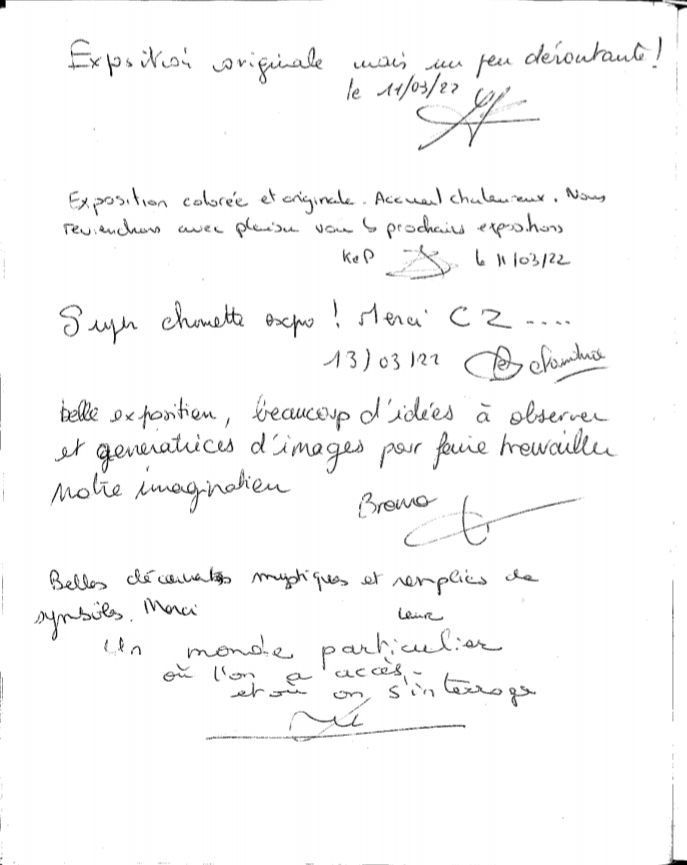 Exposition originale mais un peu déroutante!
le 11/03/22
Exposition colorée et originale. Accueil chaleureux. Nous
reviendrons avec plaisir voir les prochaines expositions
K et P le 11/03/22
Super chouette expo! Merci C Z ....
13/03/22
belle exposition, beaucoup d'idées à observer
et generatrices d'images pour faire travailler
notre imagination
Bruno
Belles découvertes mystiques et remplies de
symboles. Merci
Un monde particulier
où l'on a accès-
et où on s'interroge